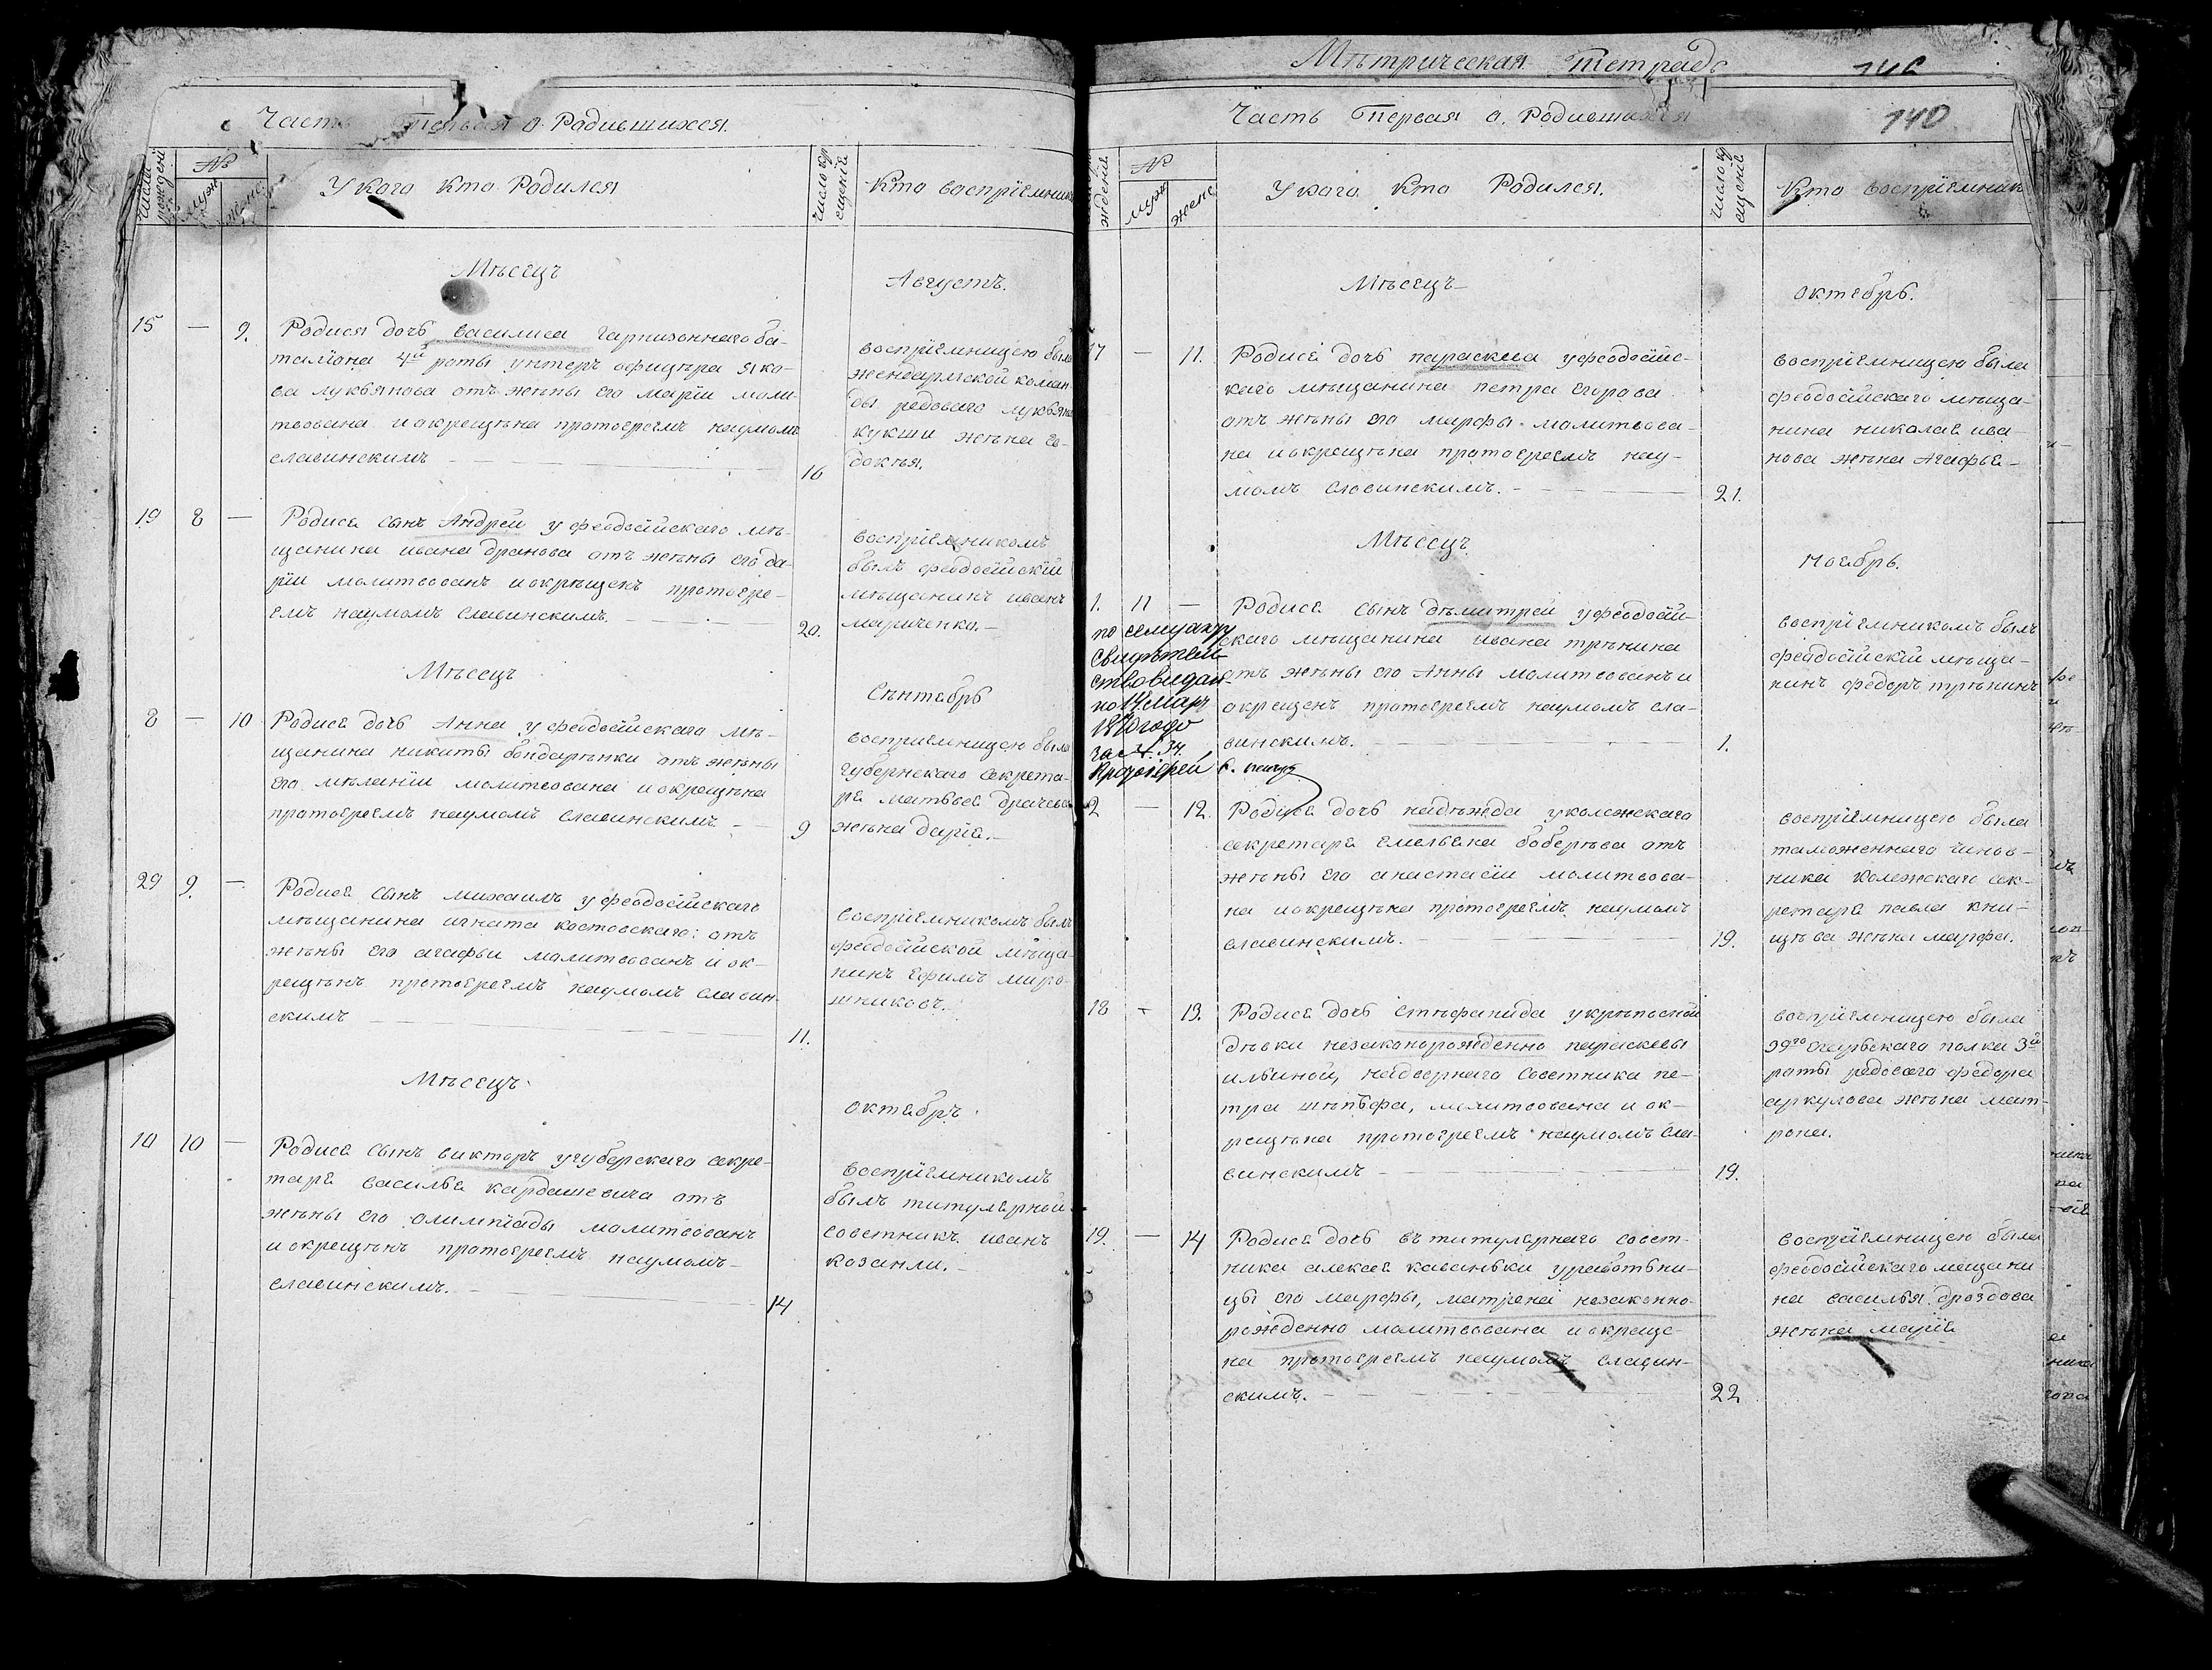 Часть Первая о Родившихся.
Числа рожденій
№
муж:
женс:
У кого кто Родился
Число кр
ещеніе
Кто воспріемник
Мѣсецъ
Августъ.
15 — 9.
Родися дочь василиса гарнизоннаго ба-
таліона 4й роты унтеръ офицѣра яко-
ва лукьянова отъ жѣны его маріи моли-
твована и окрещѣна протоереемъ наумомъ
славинскимъ
16
воспріемницею была
жендармской коман-
ды редоваго лукьяна
кукши жѣна ев-
докѣя.
19 8 —
Родися сынъ Андрей у феодосійскаго мѣ-
щанина ивана дранова отъ жѣны его да-
ріи молитвованъ и окрѣщенъ протоере-
емъ наумомъ славинскимъ.
20.
воспріемникомъ
былъ феодосійскій
мѣщанинъ иванъ
мариченко.
Мѣсецъ
Сѣнтебрь
8 — 10
Родися дочь Анна у феодосійскаго мѣ-
щанина никиты бондарѣнки отъ жѣны
его мѣланіи молитвована и окрещѣна
протоереемъ наумомъ славинскимъ
9
воспріемницею была
губернскаго секрета-
ря матвѣя драчева
жѣна даріе.
29 9. —
Родися сынъ михаилъ у феодосійскаго
мѣщанина игната костовскаго: отъ
жѣны его агафьи молитвованъ и ок-
рещѣнъ протоереемъ наумомъ славин-
скимъ
11.
воспріемникомъ былъ
феодосійской мѣща-
нинъ ефимъ миро-
шниковъ.
Мѣсецъ
октебръ.
10 10 —
Родися сынъ викторъ у губерскаго секре-
таря василья кардашевича отъ
жѣны его олимпіады молитвованъ
и окрещѣнъ протоереемъ наумомъ
славинскимъ.
14
воспріемникомъ
былъ титулярной
советникъ иванъ
козанли.
Мѣтрическая тетрадь
146
140
Часть Первая о Родившихся
ждение
№
муж
женс
У кого Кто Родился.
Число кр
ещеніе
Кто воспріемник
Мѣсецъ
октебрь.
17 — 11.
Родися дочь параскиа у феодосійс-
каго мѣщанина петра егорова
отъ жѣны его марфы молитвова-
на и окрещѣна протоереемъ нау-
момъ славинскимъ.
21.
воспріемницею была
феодосійскаго мѣща-
нина николае ива-
нова жѣна Агафье
Мѣсецъ
Ноебрь.
1. 11 —
Родися сынъ дѣмитрей у феодосій-
скаго мѣщанина ивана трѣнина
отъ жѣны его Анны молитвованъ и
окрещенъ протоереемъ наумомъ сла-
винскимъ.
1.
воспріемникомъ былъ
феодосійскій мѣща-
нинъ федоръ трѣнинъ
по сему акту
свидѣтель-
ство видан-
но 14 мар
года
за № 34.
Протоіерей
2 — 12.
Родися дочь надѣжда у колежскаго
секретаря емельяна боберѣва отъ
жѣны его анастасіи молитвова-
на и окрещѣна протоереемъ наумомъ
славинскимъ.
19.
воспріемницею была
таможеннаго чинов-
ника колежскаго сек-
ретаря павла кни-
цѣва жѣна марфа.
18 — 13.
Родися дочь стѣфанида у крѣпосной
дѣвки незаконорожденно параскевы
ильиной, надворнаго советника пе-
тра шѣпѣфа, молитвована и ок-
рещѣна протоереемъ наумомъ сла-
винскимъ
19.
воспріемницею была
39го егерьскаго полка 3й
роты редоваго федора
аркулова жѣна мат-
рона.
19. — 14
Родися дочь въ титулярнаго совет-
ника алексея каваньки у работьни-
цы его марфы, матрена незаконно-
рожденно молитвована и окреще-
на протоереемъ наумомъ славин-
скимъ.
22
воспріемницею была
феодосійскаго мещани
на василья дроздова
жѣна маріе